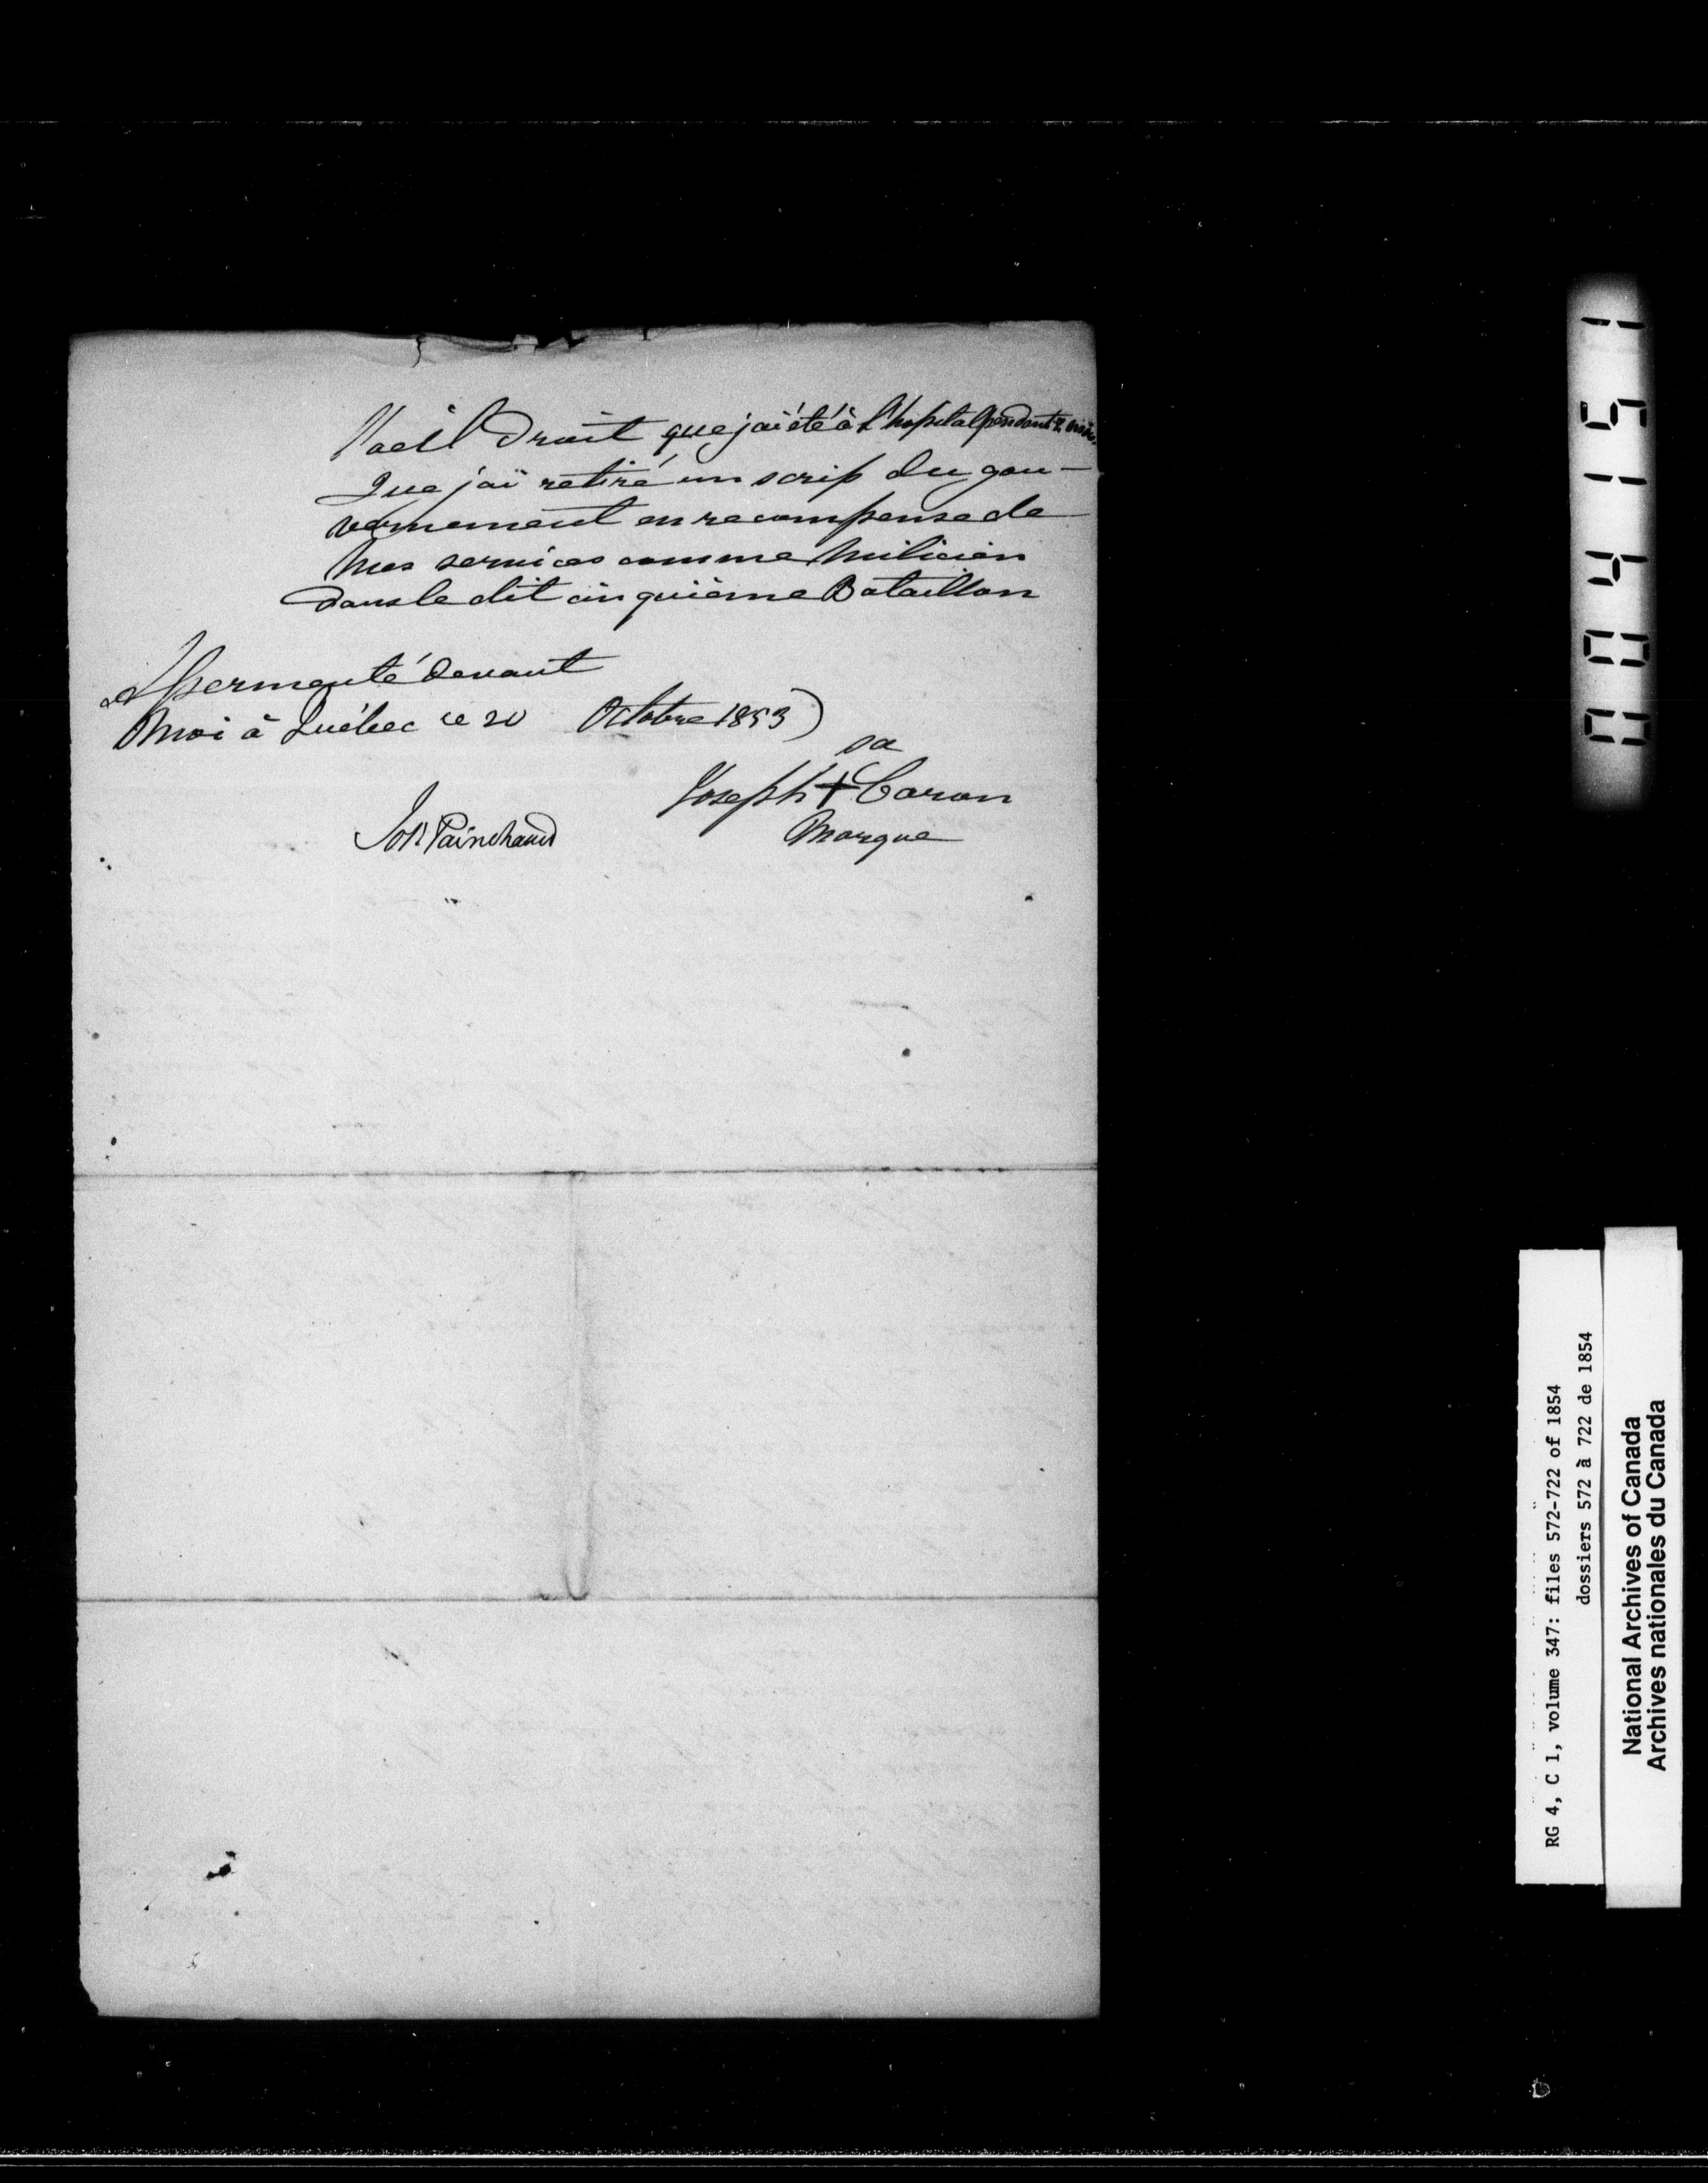 Noel Droit que jai été à l'hopital pendant 2 mois
Que jai retiré un scrip du gou-
vernement en recompense de
mes services comme milicien
dans le dit cinquième Bataillon
Assermenté devant
Moi à Québec ce 20 Octobre 1853)
sa
Joseph + Caron
Marque
Jos Painchaud
004151
RG 4, C 1, volume 347: files 572-722 of 1854
dossiers 572 à 722 de 1854
National Archives of Canada
Archives nationales du Canada